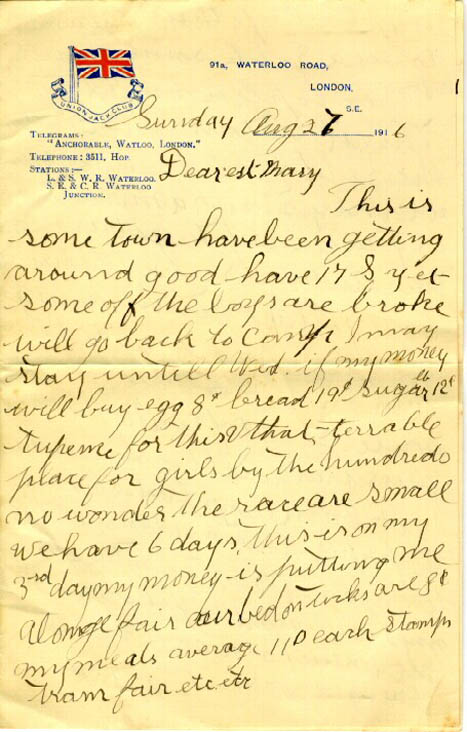 91a, WATERLOO ROAD,
LONDON,
S.E.
UNION JACK CLUB
Sunday Aug 27 1916
TELEGRAMS:
"ANCHORABLE, WATLOO, LONDON."
TELEPHONE: 3511, HOP.
STATIONS:—
L. & S. W. R. WATERLOO.
S. E. & C. R. WATERLOO
JUNCTION.
Dearest Mary
This is
some town have been getting
around good have 17 S yet
some off the boys are broke
will go back to camp I may
stay untill Wed. if my money
will buy egg 8d bread 19d sugar lb 12d
tupence for this & that terrable
place for girls by the hundreds
no wonder the race are small
we have 6 days, this is on my
3rd day my money is putting me
alonge fair our bed on ticks are 8d
my meals average 11D each stamps
tram fair etc etc